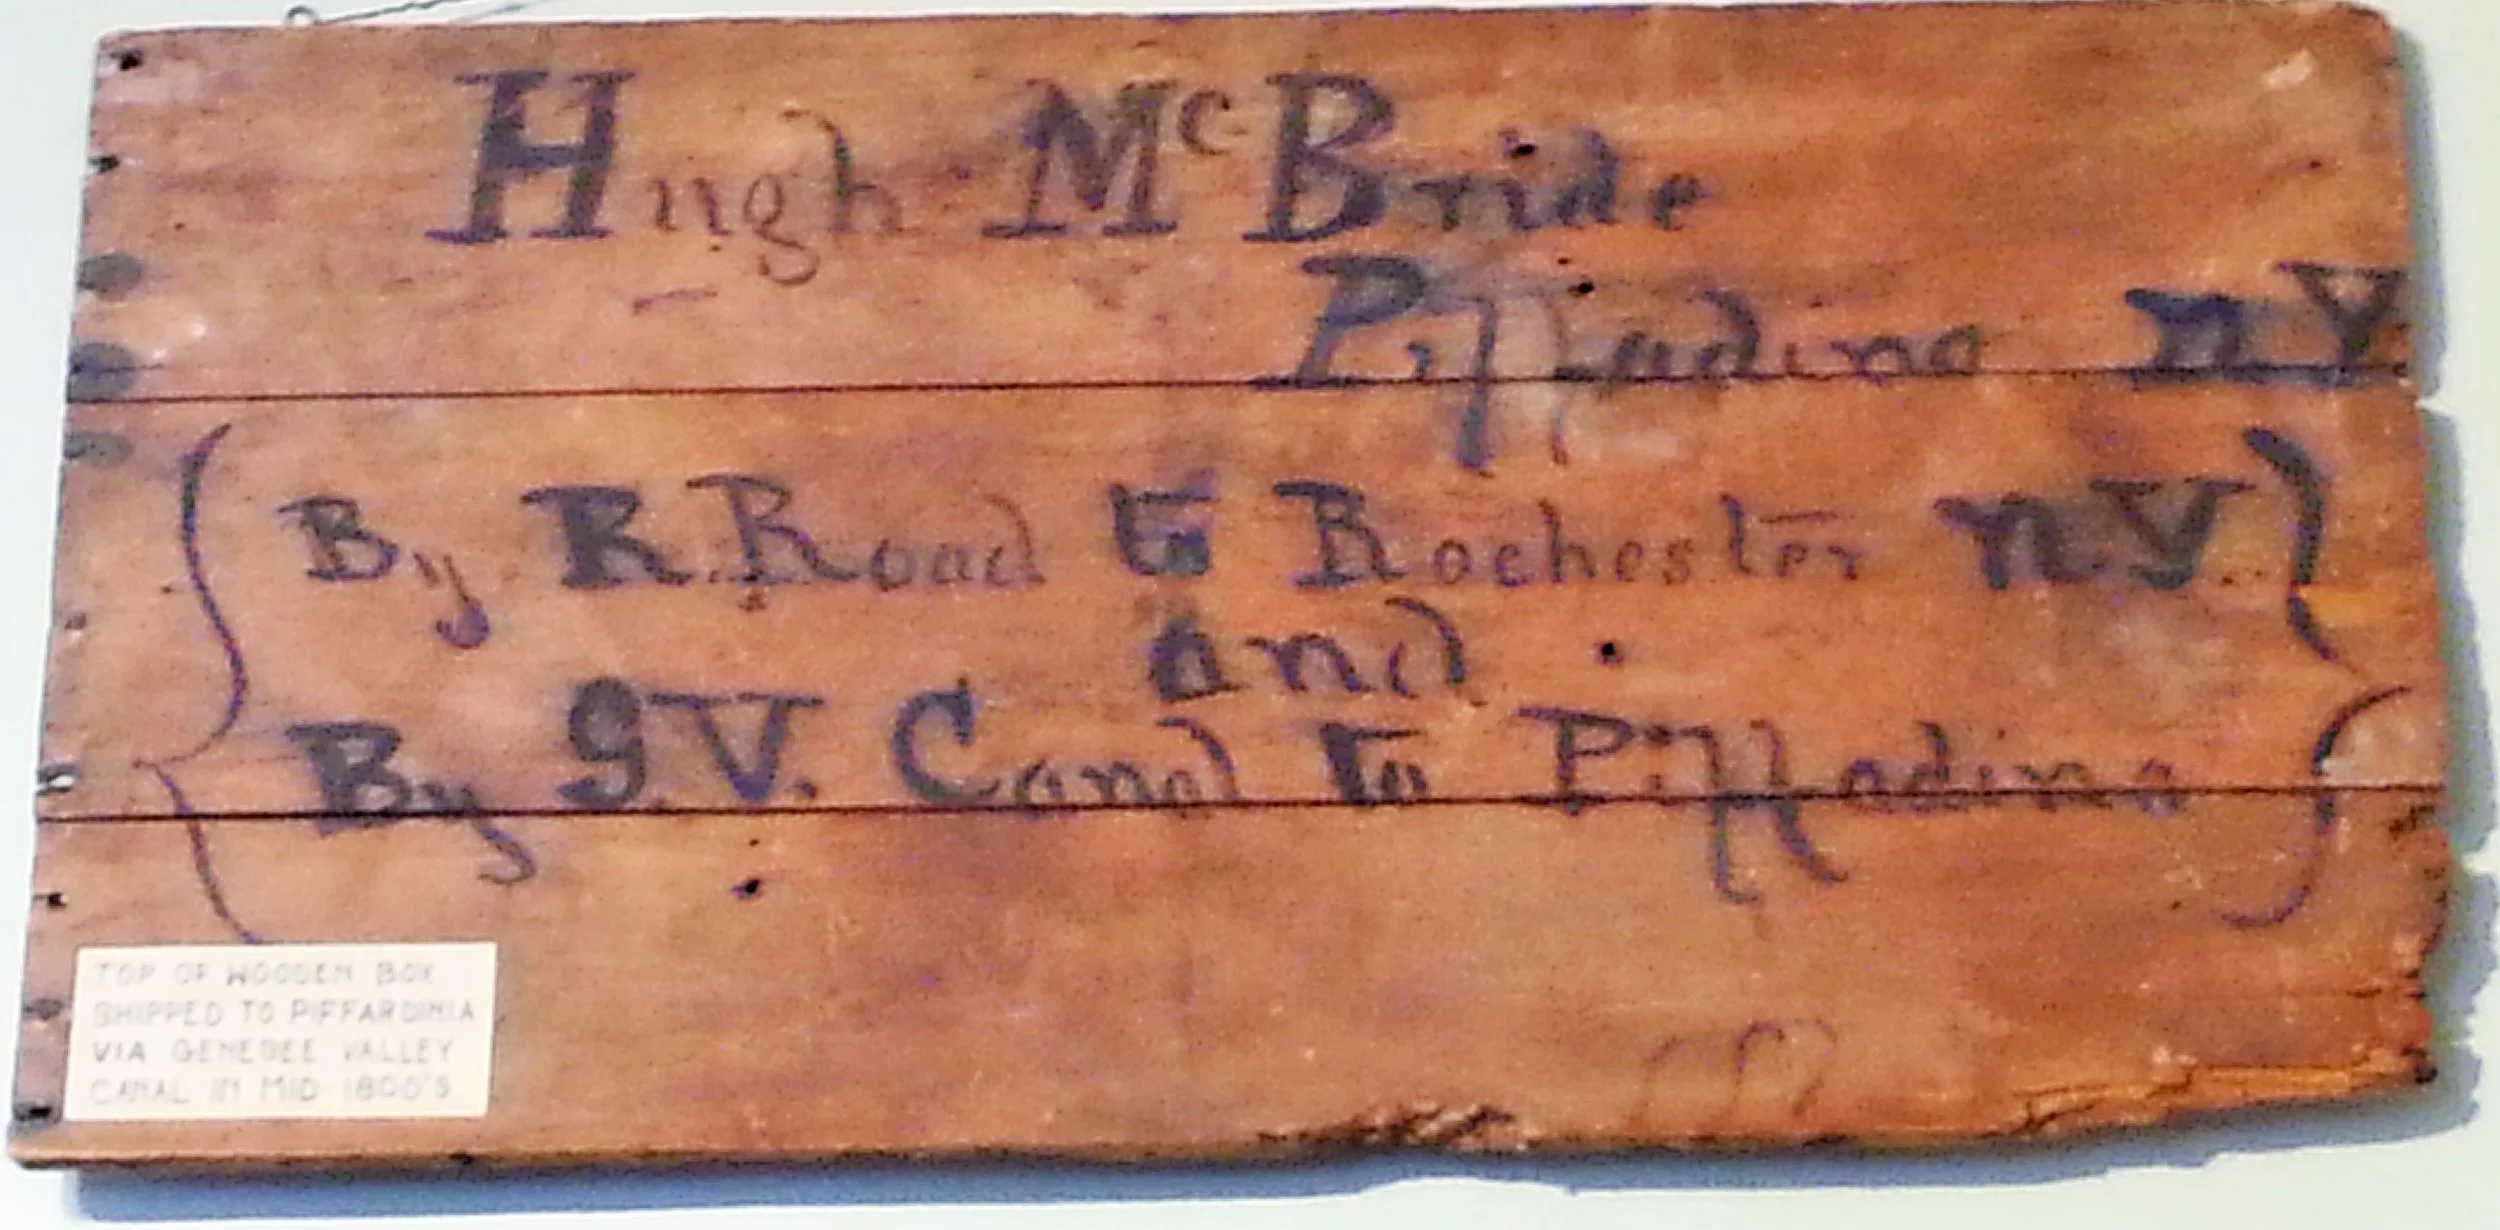 Hugh McBride
Piffadina N.Y.
By R. Road to Rochester N.Y.
and
By G.V. Canal to Piffadina
TOP OF WOODEN BOX
SHIPPED TO PIFFARDINIA
VIA GENESEE VALLEY
CANAL IN MID 1800'S